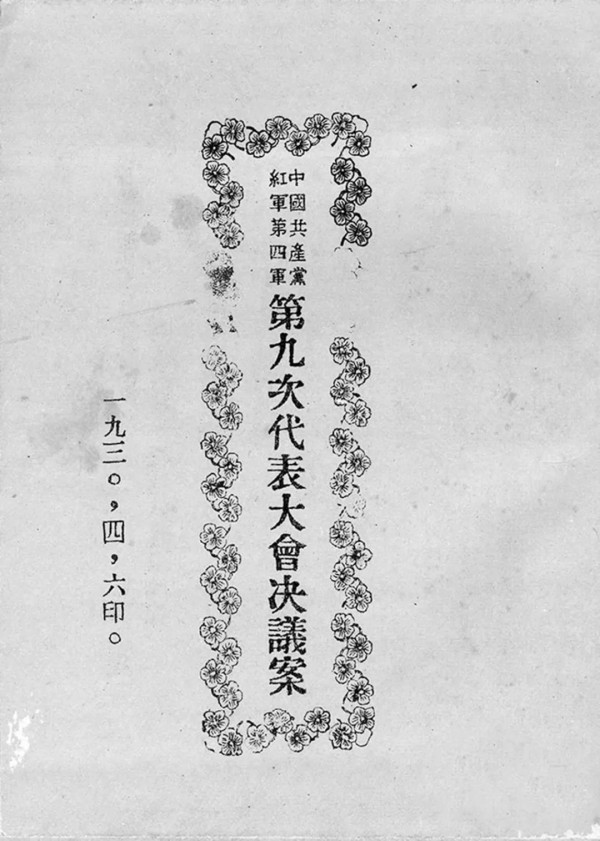 中國共產黨
紅軍第四軍
第九次代表大會決議案
一九三〇，四，六印。